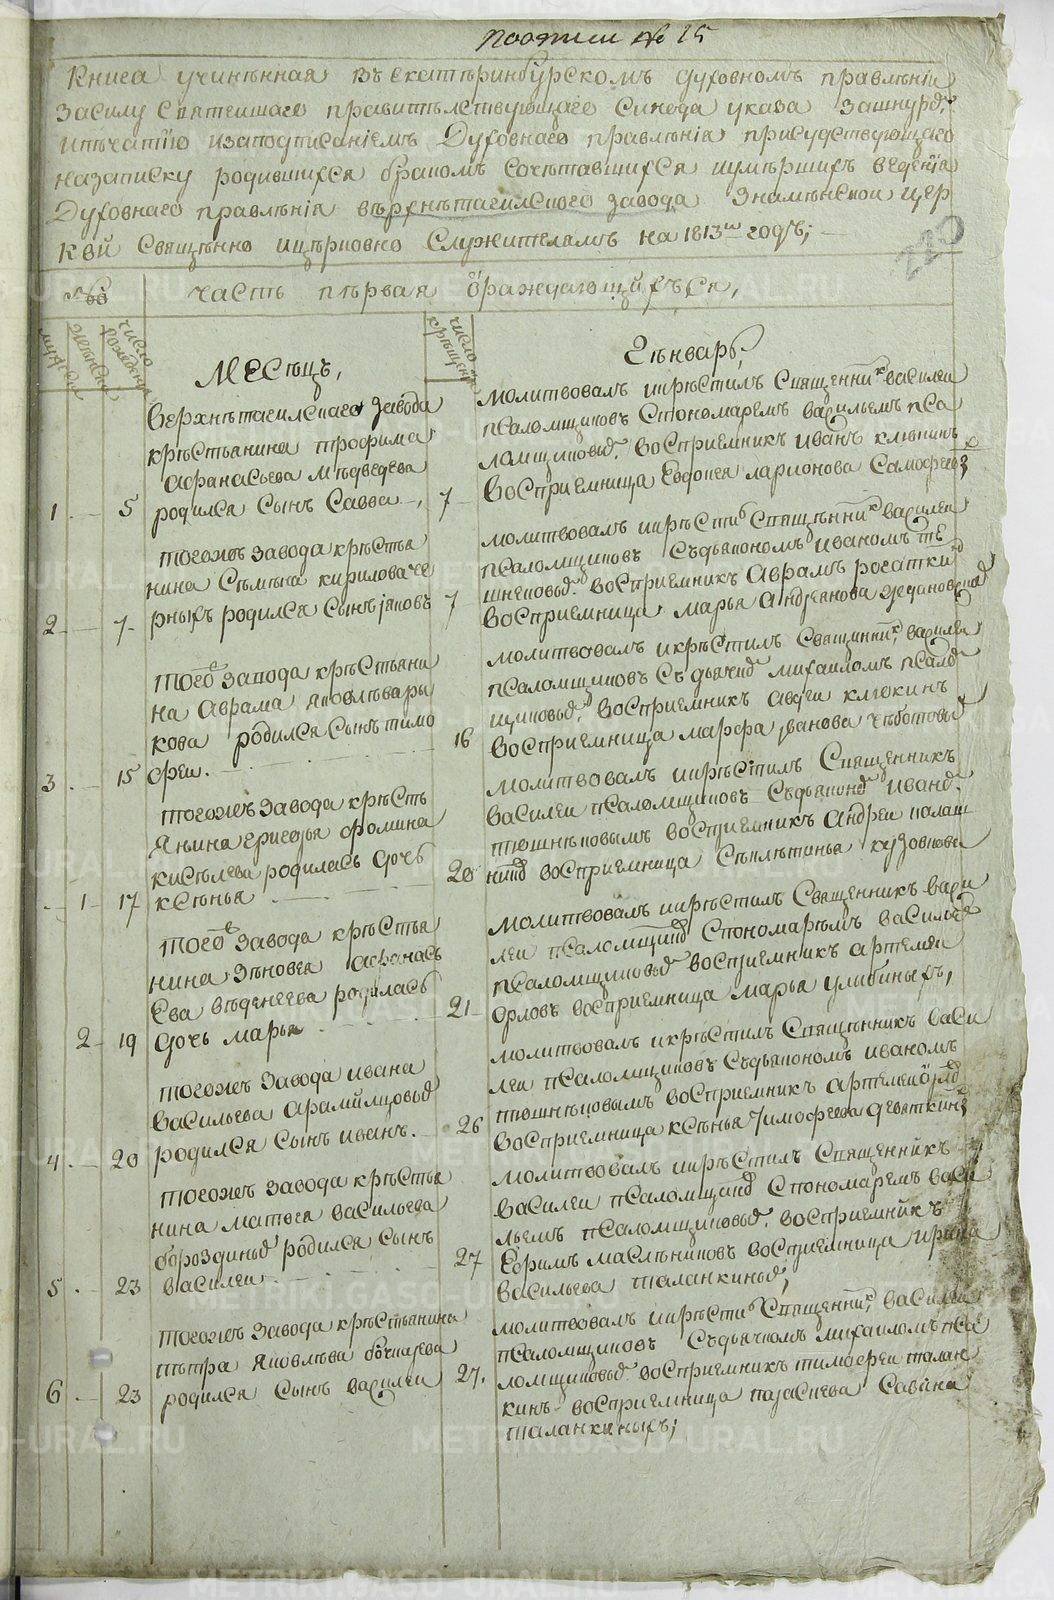 по описи № 25
Книга учинънная въ екатъринбурскомъ духовномъ правлъніи
засилу Святеишаго правительствующаго Синода указа зашнурд:
ипъчатью изаподписаніемъ Духовнаго правлънія присудствующаго
назаписку родившихся бракомъ сочътавшихся иумършихъ въденія
Духовнаго правлънія върхнътагилскаго завода Знамънскои цер
квй Священно ицърковно Служителамъ на 1813ы годъ;
220
№
часть първая ораждающихъся,
мужеска
женска
число рождения
Месяцъ,
число крещения
Генварь,
верхнетагилскаго завода
кръстьянина трофима
афанасьева мъдведева
1 5 родился Сынъ Савва
молитвовалъ икръстилъ Священникъ василеи
псаломщиковъ Спономаремъ васильемъ пса
ломщиковыд. восприемникъ иванъ клюкинъ
7 восприемница Евдокея ларионова
тогожъ завода кръстья
нина Съмъна кирилова че
2 7 рныхъ родился Сынъ јяковъ
молитвовалъ икръсти Священникъ василеи
псаломщиковъ Съдьякономъ Иваномъ тъ
шнековыд. восприемникъ Аврамъ рогаткид
7 восприемница марья Андреанова
того завода кръстьяни
на Аврама яковлъва
кова родился Сынъ тимо
3 15 феи.
молитвовалъ икръстилъ Священникъ василеи
псаломщиковъ Съдьячкд михаиломъ псалд
щиковыд. восприемникъ клюкинъ
16 восприемница марфа јванова
тогожъ завода кръсть
янина григорья фомина
кисълева родилась дочь
1 17 ксънья
молитвовалъ икръстилъ Священникъ
василеи псаломщиковъ Съдьяконд Иванд.
тюшнъковымъ восприемникъ Андреи
20 восприемница
того завода кръстья
нина зъновея афанась
Ева въденеева родилась
2 19 дочь марья
молитвовалъ икръстилъ Священникъ васи
леи псаломщикд Спономаръмъ васильемд
псаломщиковыд восприемникъ артемеи
21 орловъ восприемница марья улыбиныхъ,
тогожъ завода ивана
васильева арамилцовыд
4 20 родился Сынъ иванъ.
молитвовалъ икръстилъ Священникъ васи
леи псаломщиковъ Съдьякономъ иваномъ
тюшнъцовымъ восприемникъ артемеи
26 восприемница ксънья тимофеева девяткинд
тогожъ завода кръстья
нина матвея васильева
бороздиныд родился Сынъ
5 23 василеи
молитвовалъ икръстилъ Священникъ
василеи псаломщикд Спономаремъ васи
льемъ псаломщиковыд. восприемникъ
27 Ефримъ маслъниковъ восприемница ирина
васильева таланкиныд,
тогожъ завода кръстьянина
пътра яковлъва бочкарева
6 23 родился Сынъ василеи
молитвовалъ икръсти Священникъ василеи
псаломщиковъ Съдьячкомъ михаиломъ пса
27. ломщиковыд. восприемникъ тимофеи талан
кинъ восприемница Савина
таланкиныхъ;